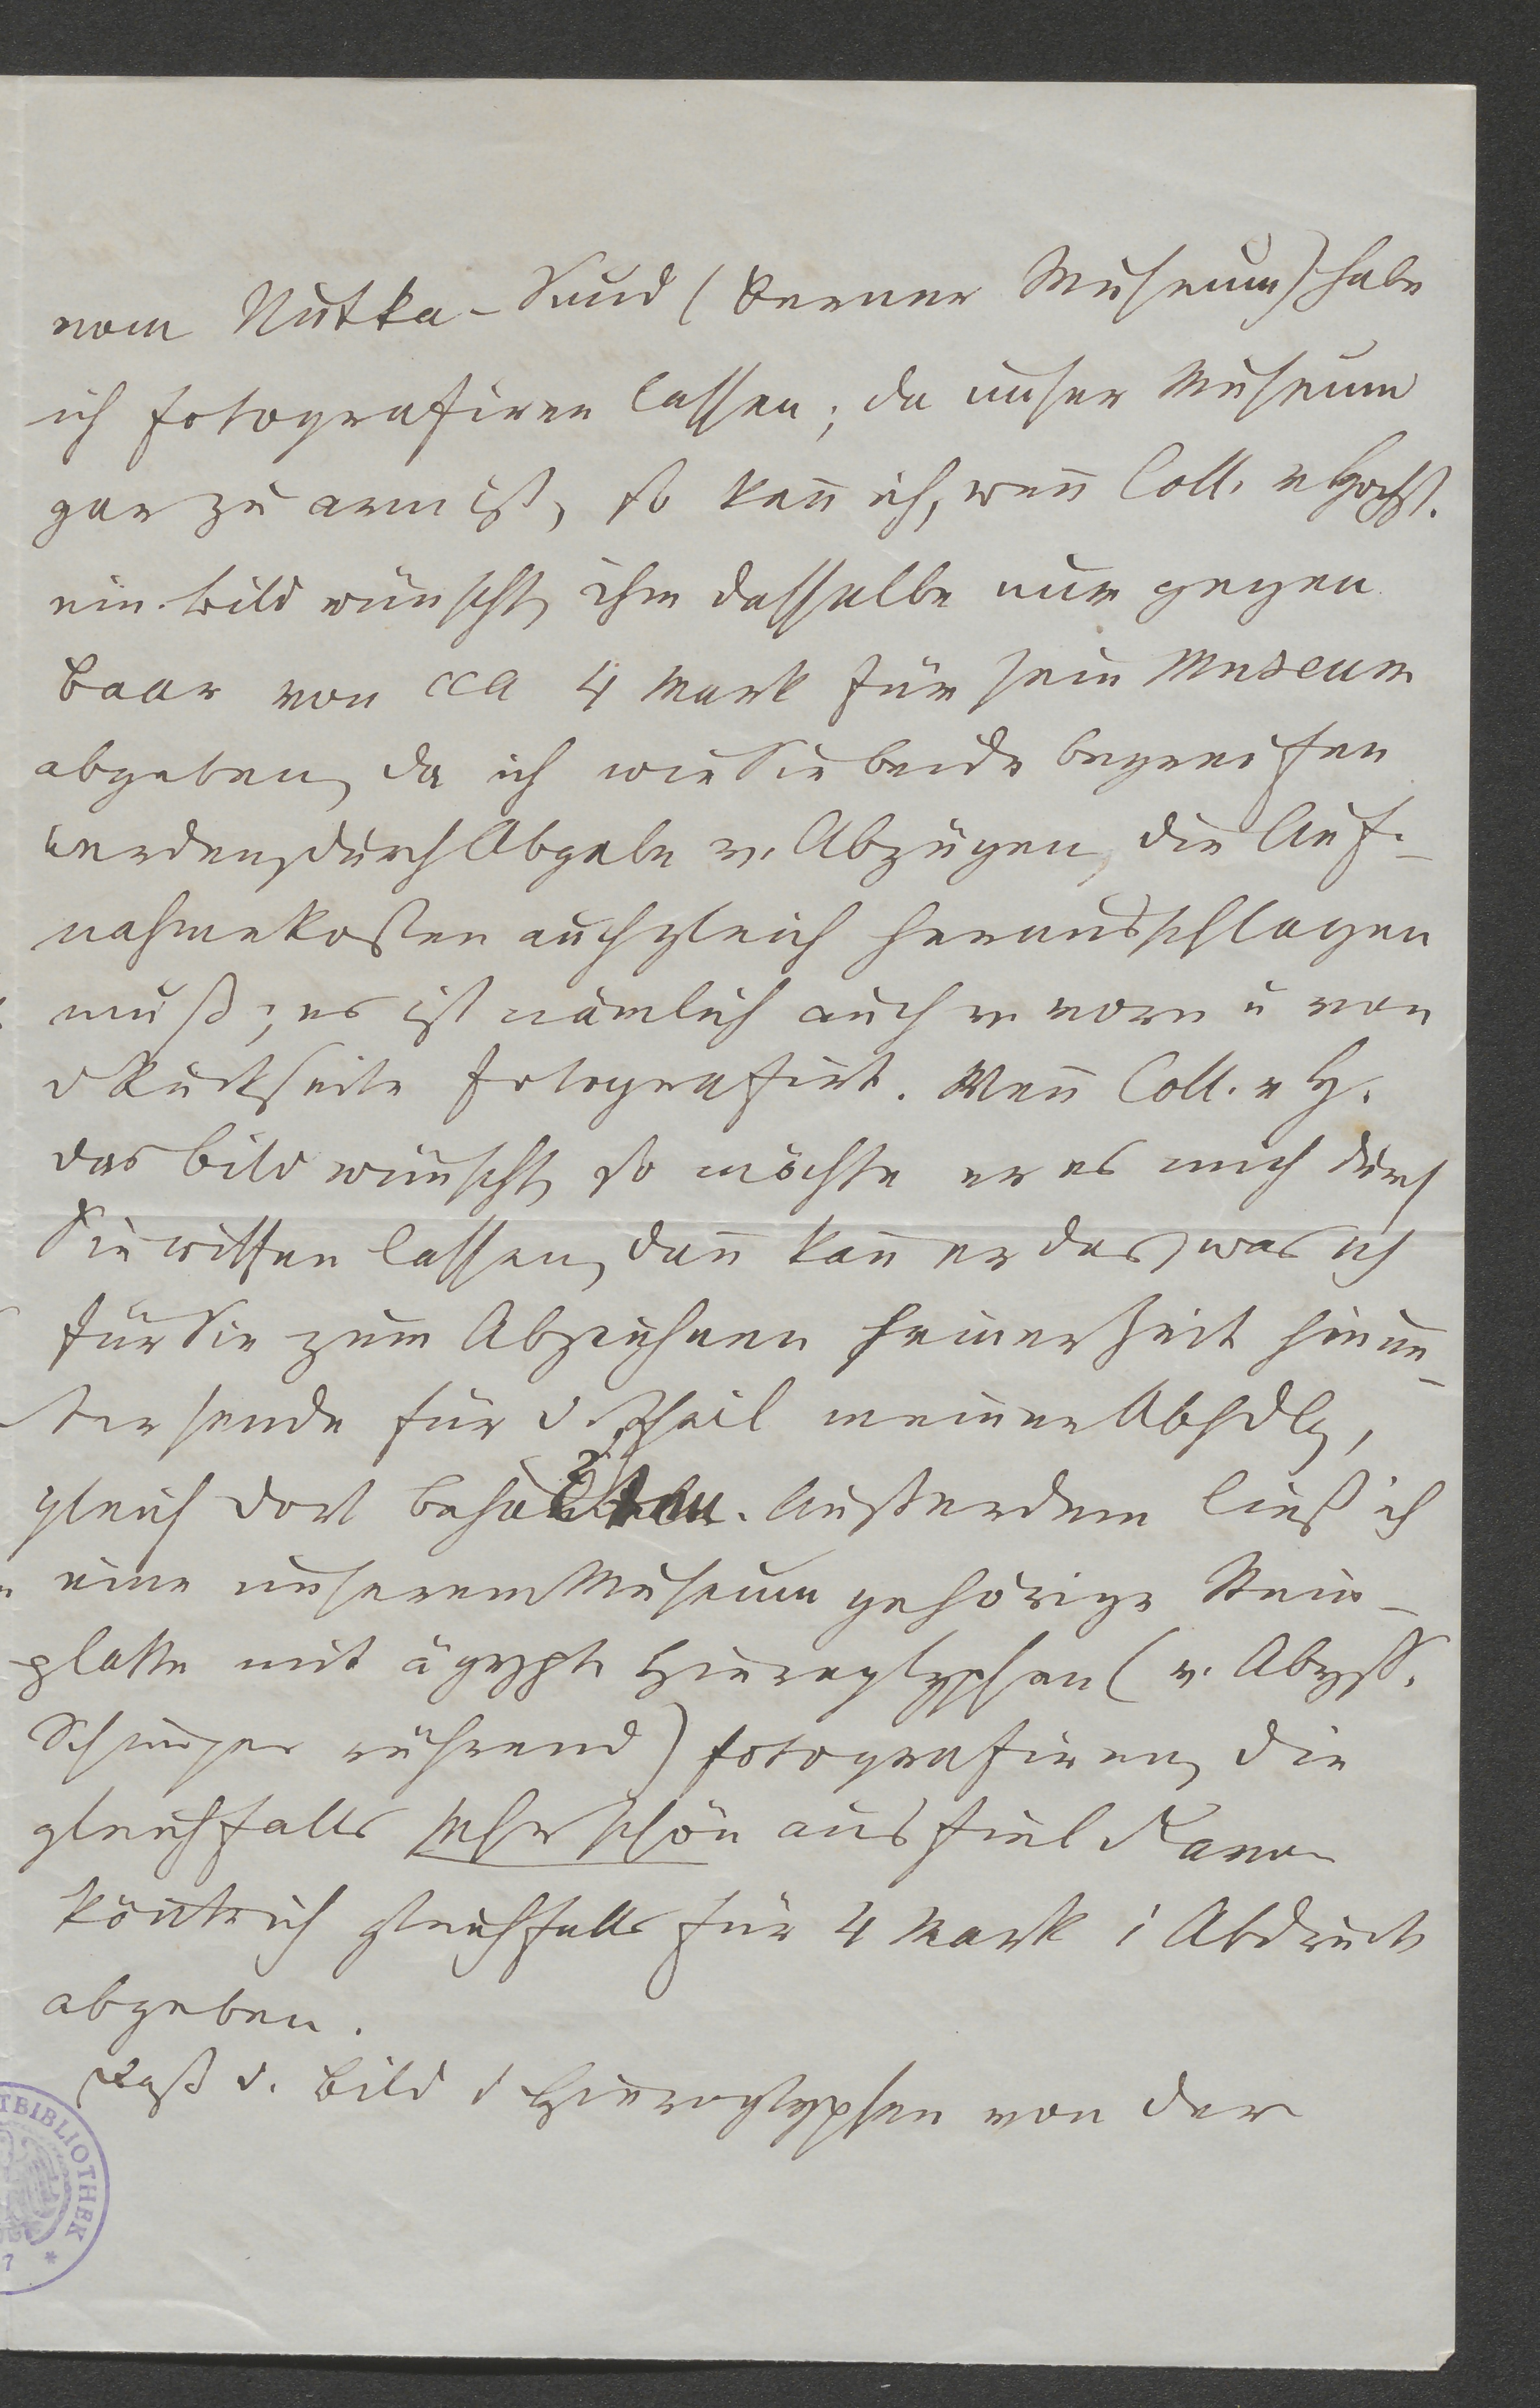 vom Nutka-Sund (Berner Museum) habe
ich fotografiren lassen; da unser Museum
gar zu arm ist, so kan̄ ich, wen̄ Coll. v Hochst.
ein Bild wünscht, ihm dasselbe nur gegen
baar von cca 4 Mark für sein Museum
abgeben, da ich wie Sie beide begreifen
werden, durch Abgabe v. Abzügen, die Auf-
nahmekosten auch gleich herausschlagen
muß; es ist nämlich auch v. vorn u von
d Rückseite fotografirt. Wen̄ Coll. v H.
das Bild wünscht, so möchte er es mich durch
Sie wissen lassen, dan̄ kan̄ er das, was ich
für Sie zum Abzeichnen seiner Zeit hinun-
ter sende für d. Theil meiner Abhdlg,
gleich dort behalten. Außerdem ließ ich
eine unserem Museum gehörige Stein-
platte mit ägypt. Hieroglyphen (v. Abyss.
Schimper rührend) fotografiren, die
gleichfalls sehr schön ausfiel. Davon
kön̄te ich gleichfalls für 4 Mark 1 Abdruck
abgeben.
Daß d. Bild d Hieroglyphen von der
TBIBLIOTHEK
7 *